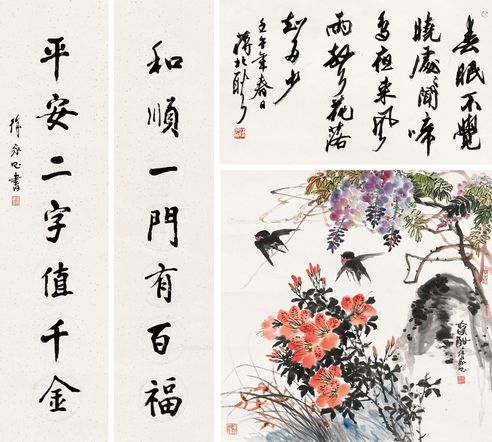 和順一門有百福
平安二字值千金
書
春眠不覺
曉處々聞啼
鳥夜來風
雨聲花落
知多少
壬午年春日